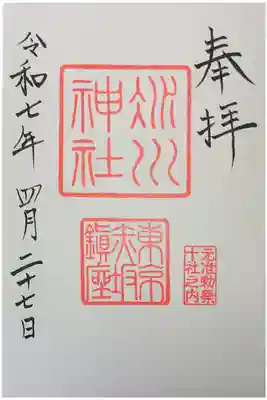 奉拝
氷川
神社
東京
赤坂
鎮座
元准勅祭
十社之内
令和七年 四月二十七日